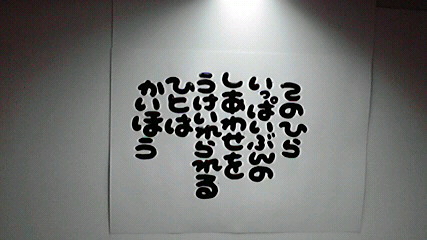 てのひら
いっぱいぶんの
しあわせを
うけいれられる
ひとは
かいほう